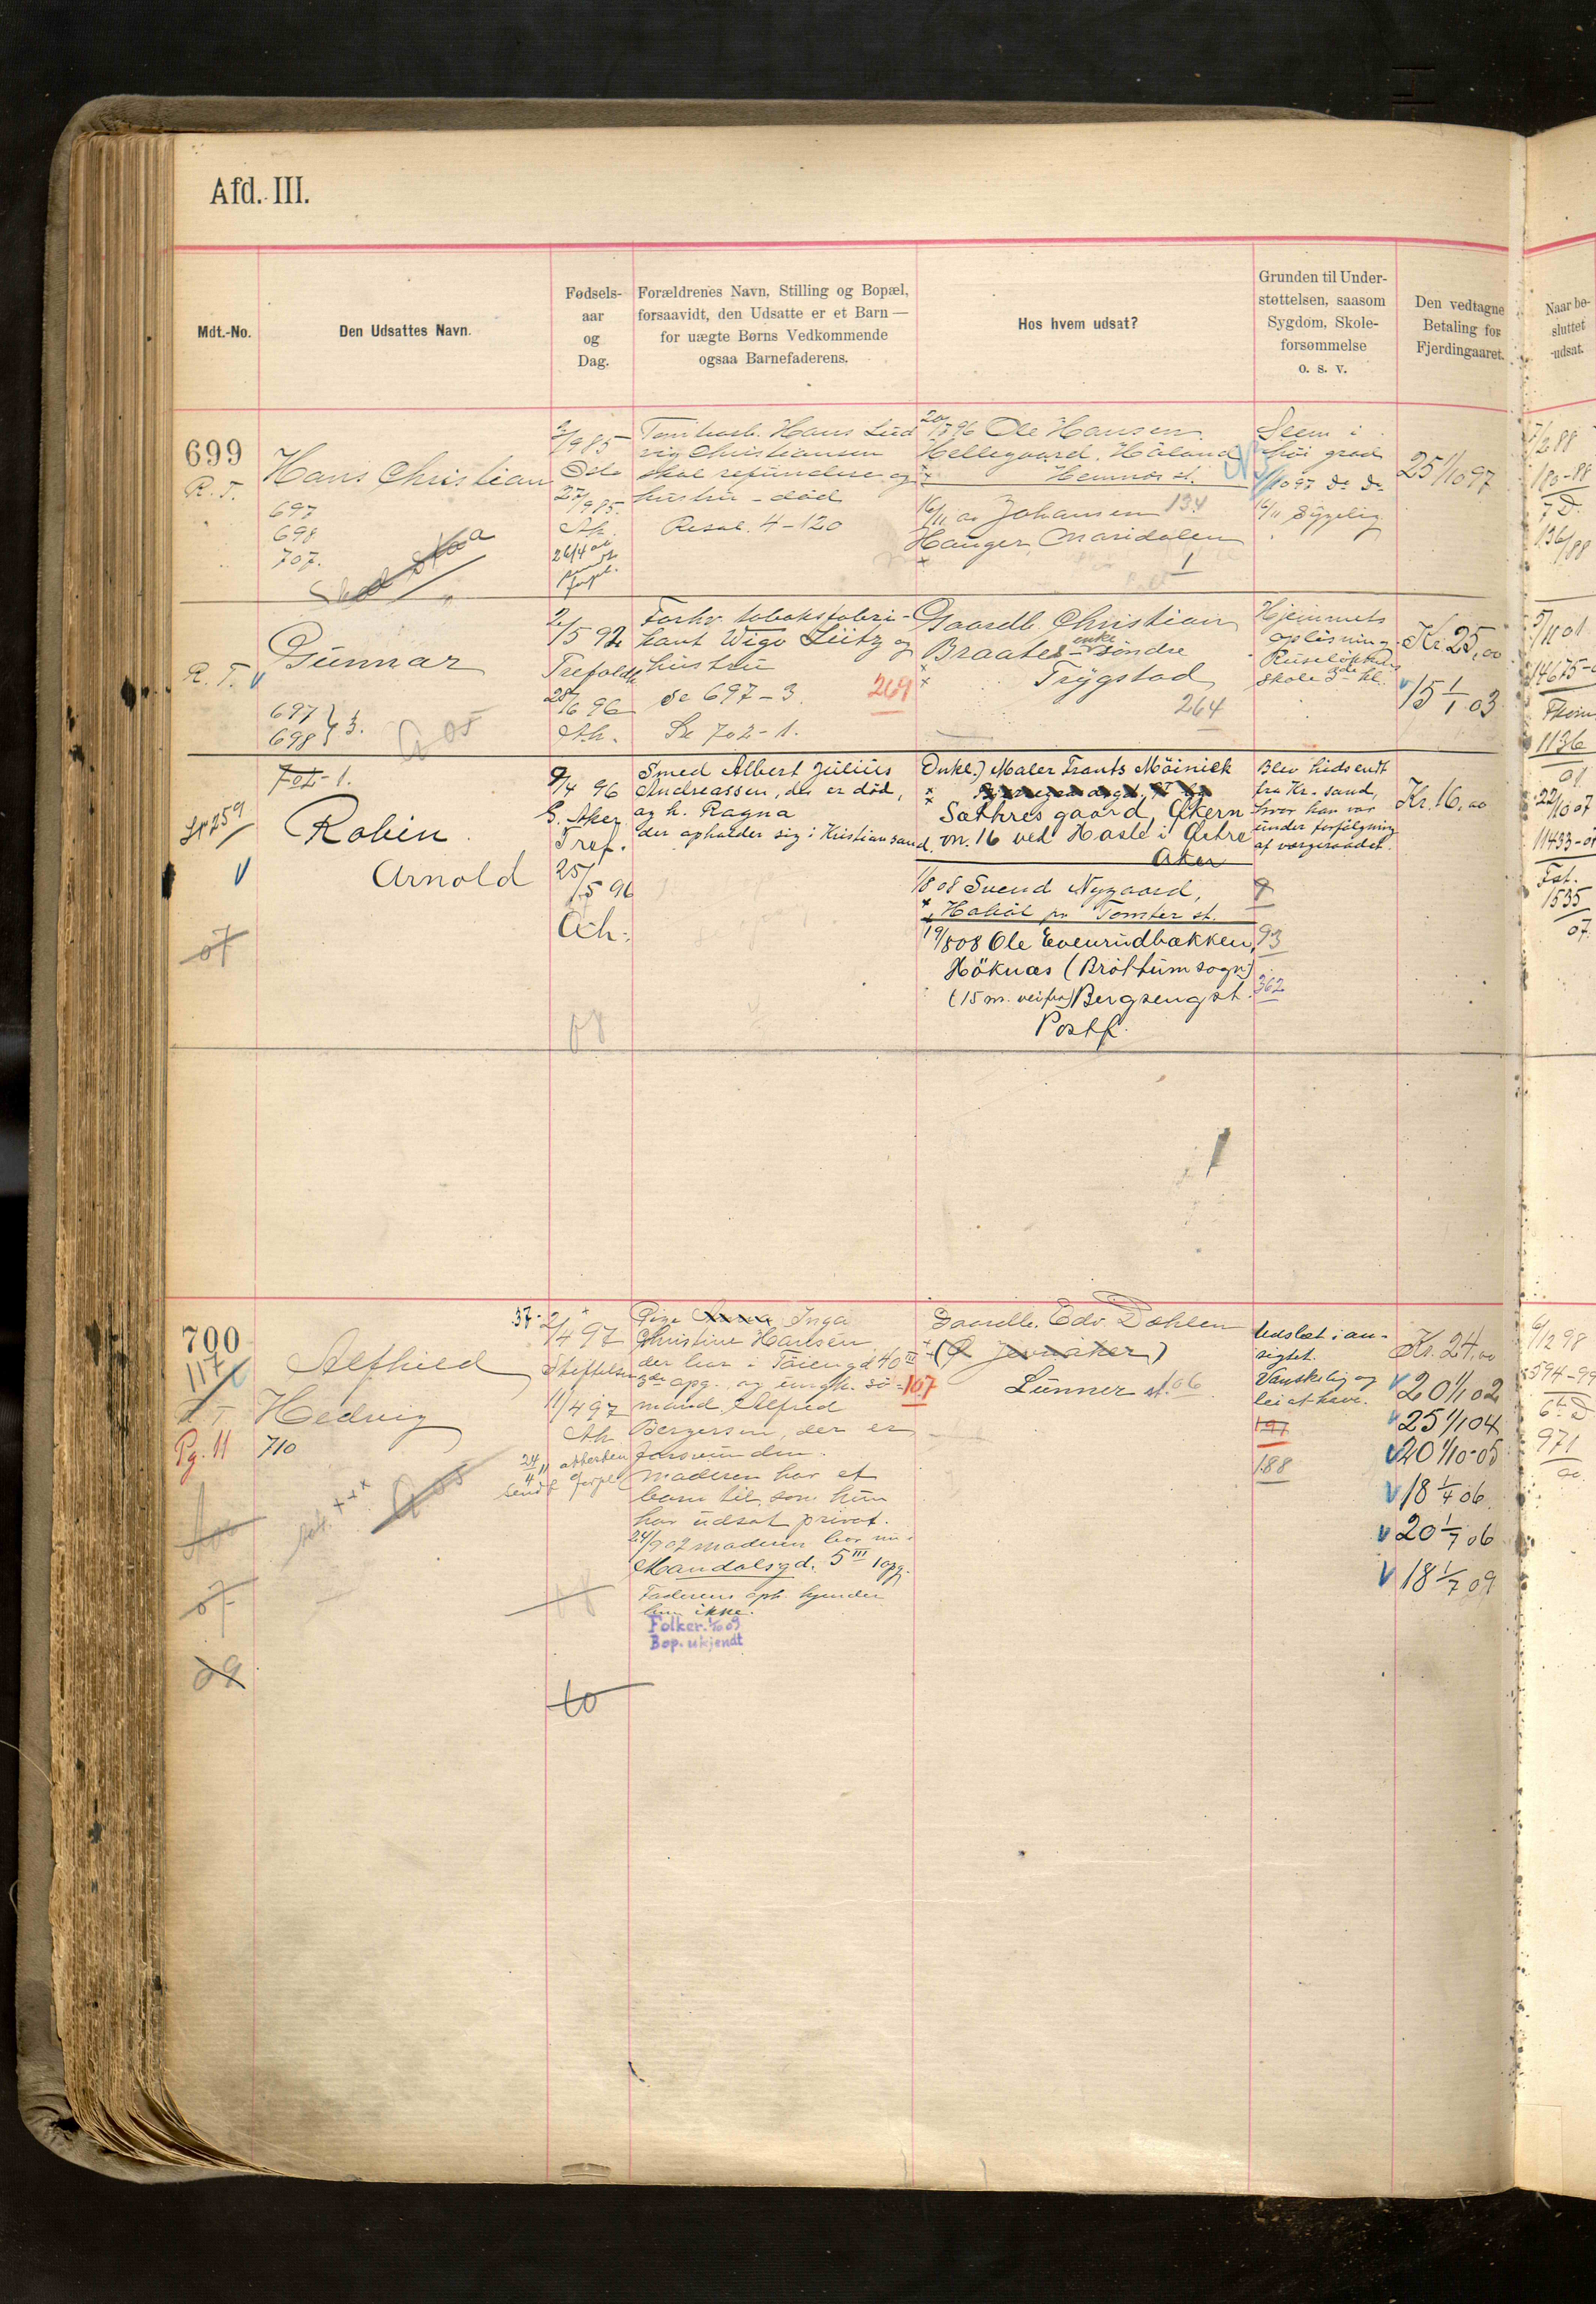 Afd. III.
Mdt.-No.
Den Udsattes Navn.
Fødsels-
aar
og
Dag.
Forældrenes Navn, Stilling og Bopæl,
forsaavidt, den Udsatte er et Barn —
for uægte Børns Vedkommende
ogsaa Barnefaderens.
Hos hvem udsat?
Grunden til Under-
støttelsen, saasom
Sygdom, Skole-
forsømmelse
o. s. v.
Den vedtagne
Betaling for
Fjerdingaaret.
Naar be-
sluttet
udsat.
699
R. T.
Hans Christian
697
698
707.
2/9 85
27/9 85.
Ak.
26/4
Hans Lud
vig Christiansen
skal refundere og
hustru - død
Resol. 4-120
Ole Hansen
Hellegaard, Høland
Hemnæs st.
16/11 Johansen 134
Hauger, Maridalen
1
Slem i
høi grad
1/10 97 do do
16/11 Sygelig
25 1/10 97
7/2 88
180-88
7 D.
136/88
R. T. V
Gunnar
697 } 3.
698
2/5 92
Trefoldh.
28/6 96
Ak.
Forhv. tobaksfabri-
kant Wigo Lütz og
hustru
Se 697-3.
269
Se 702-1.
Gaardb. Christian
Braate's enke søndre
Trygstad
264
Hjemmets
opløsning.
Ruseløkkens
skole 3die kl.
Kr 25,00
V 15 1/1 03
5/11 01
14675-0
1136
01
702-1.
259
V
Robin
Arnold
07
9/4 96
G. Aker
Tref.
25/5 96
Ak.
08
Smed Albert Julius
Andreassen, der er død,
og h. Ragna
der opholder sig i Kristiansand.
Onkel.) Maler Frants Möinick
Sæthres gaard, Økern
m. 16 ved Hasle i Østre
Aker
1/8 08 Svend Nygaard,
Haböl pr Tomter st.
19/8 08 Ole Evenrudbakken, 93
Höknæs (Bröttum sogn)
(15 m. vei fra) Bergseng st. 362
Postf.
Blev hidsendt
fra Kr. sand,
hvor han var
under forfølgning
af værgeraadet.
Kr. 16,00
22/10 07
11433-07
Fat.
1535
07.
700
117
Pg. 11
Alfhild
Hedvig
710
07
09
37-2/4 97
11/4 97
Ak
24/4
10
Pige Inga
Christine Karlsen
der bor i Töiengd 40 III
3de opg. og ungk. sö- 107
mand Alfred
Bergersen, der er
forsvunden.
Moderen har et
barn til, som hun
har udsat privat.
24/9 02 moderen bor nu
Mandalsgd. 5 III 1 opg.
Faderens oph. kjender
hun ikke.
Folker. 1/10 09
Bop. ukjendt
Gaardb. Edv. Dæhlen
(Ø Jevnaker)
Lunner st. 06
Udslæt i an-
sigtet.
Vanskelig og
lei at have.
197
188
Kr. 24,00
V 20 1/1 02
V 25 1/1 04
V 20 1/10-05
V 18 1/4 06
V 20 1/7 06
V 18 1/7 09
6/12 98
594-99
6te D
971
00